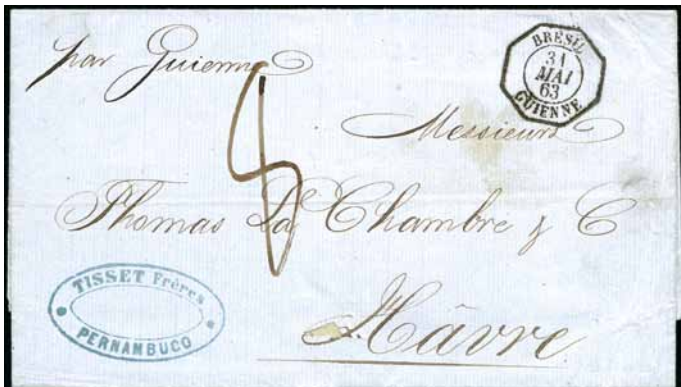 par Guienne
BRÉSIL
31
MAI
63
GUIENNE
Messieurs
8
Thomas La Chambre & C
Hâvre
TISSET Frères
PERNAMBUCO